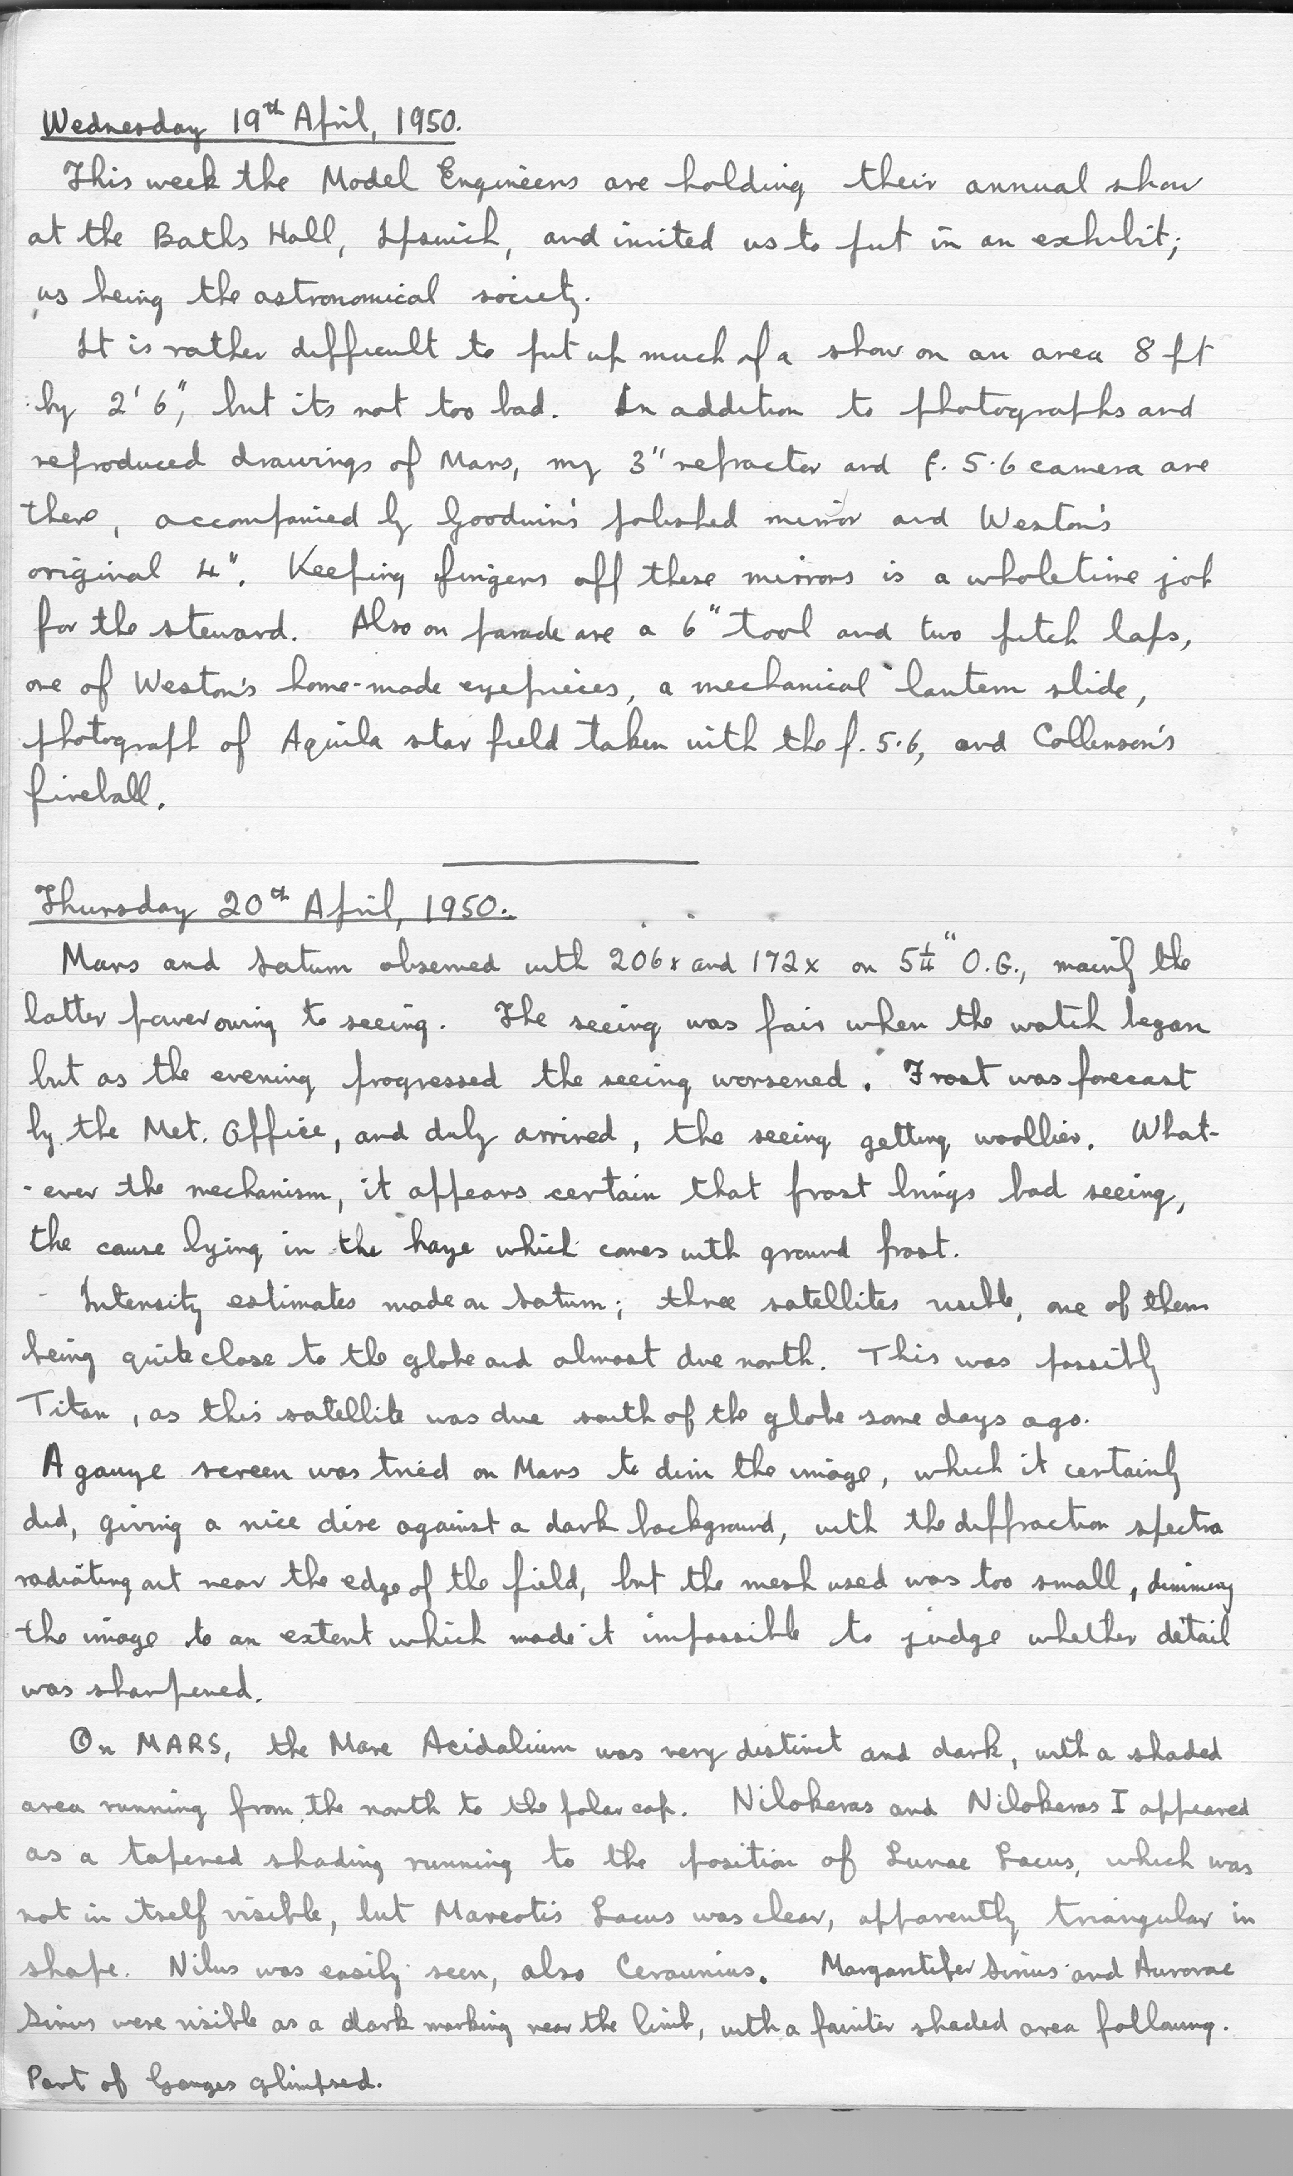 Wednesday 19th April, 1950.
This week the Model Engineers are holding their annual show
at the Baths Hall, Ipswich, and invited us to put in an exhibit;
us being the astronomical society.
It is rather difficult to put up much of a show on an area 8 ft
by 2' 6", but its not too bad. In addition to photographs and
reproduced drawings of Mars, my 3" refractor and f. 5.6 camera are
there, accompanied by Goodwin's polished mirror and Weston's
original 4". Keeping fingers off these mirrors is a wholetime job
for the steward. Also on parade are a 6" tool and two pitch laps,
one of Weston's home-made eyepieces, a mechanical lantern slide,
photograph of Aquila star field taken with the f. 5.6, and Collinson's
fireball.
Thursday 20th April, 1950.
Mars and Saturn observed with 206x and 172x on 5¼" O.G., mainly the
latter power owing to seeing. The seeing was fair when the watch began
but as the evening progressed the seeing worsened. Frost was forecast
by the Met. Office, and duly arrived, the seeing getting woollier. What-
-ever the mechanism, it appears certain that frost brings bad seeing,
the cause lying in the haze which comes with ground frost.
Intensity estimates made on Saturn; three satellites visible, one of them
being quite close to the globe and almost due north. This was possibly
Titan, as this satellite was due south of the globe some days ago.
A gauze screen was tried on Mars to dim the image, which it certainly
did, giving a nice disc against a dark background, with the diffraction spectra
radiating out near the edge of the field, but the mesh used was too small, dimming
the image to an extent which made it impossible to judge whether detail
was sharpened.
On MARS, the Mare Acidalium was very distinct and dark, with a shaded
area running from the north to the polar cap. Nilokeras and Nilokeras I appeared
as a tapered shading running to the position of Lunae Lacus, which was
not in itself visible, but Mareotis Lacus was clear, apparently triangular in
shape. Nilus was easily seen, also Ceraunius. Margaritifer Sinus and Aurorae
Sinus were visible as a dark marking near the limb, with a fainter shaded area following.
Part of Ganges glimpsed.